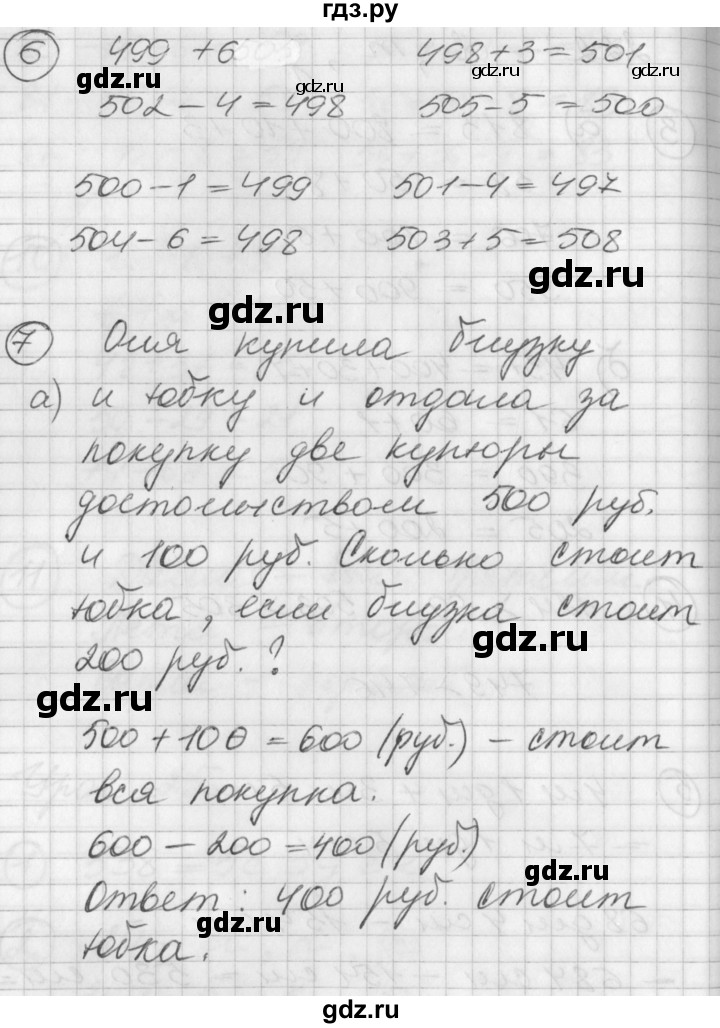 гдз.ру
6 499 + 6 498 + 3 = 501
gdz.ru gdz.ru gdz.ru
502 - 4 = 498 505 - 5 = 500
gdz.ru gdz.ru
500 - 1 = 499 501 - 4 = 497
504 - 6 = 498 503 + 5 = 508
gdz.ru
gdz.ru
7 Оля купила блузку
а) и юбку и отдала за
покупку две купюры
gdz.ru
достоинством 500 руб.
и 100 руб. Сколько стоит
юбка, если блузка стоит
gdz.ru
200 руб.?
gdz.ru
500 + 100 = 600 (руб.) - стоит
вся покупка.
600 - 200 = 400 (руб.)
gdz.ru
Ответ: 400 руб. стоит
gdz.ru
юбка.
gdz.ru